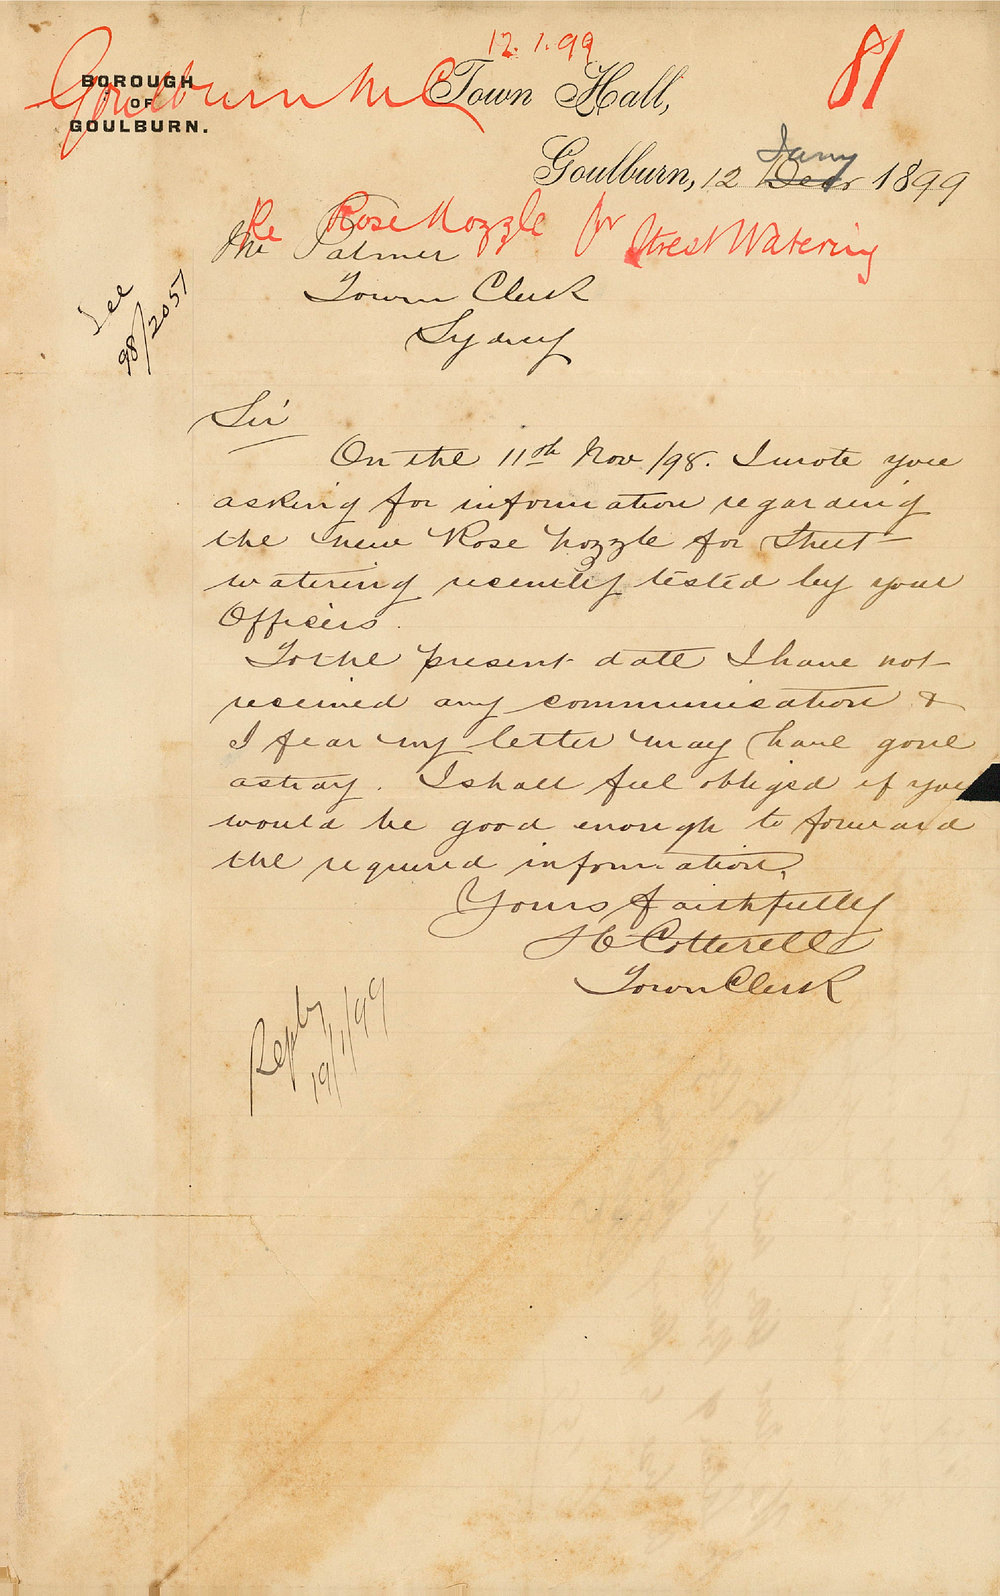 12.1.99
81
Goulburn M C
BOROUGH
OF
GOULBURN.
Town Hall,
Goulburn, 12 Decr Jany 1899
Re Rose Nozzle for Street Watering
Mr Palmer
Town Clerk
Sydney
See
98/2057
Sir
On the 11th Nov /98. I wrote you
asking for information regarding
the new Rose Nozzle for Street
watering recently tested by your
Officers.
To the present date I have not
received any communication &
I fear my letter may have gone
astray. I shall feel obliged if you
would be good enough to forward
the required information.
Yours faithfully
Cotterell
Town Clerk
Reply
19/1/99